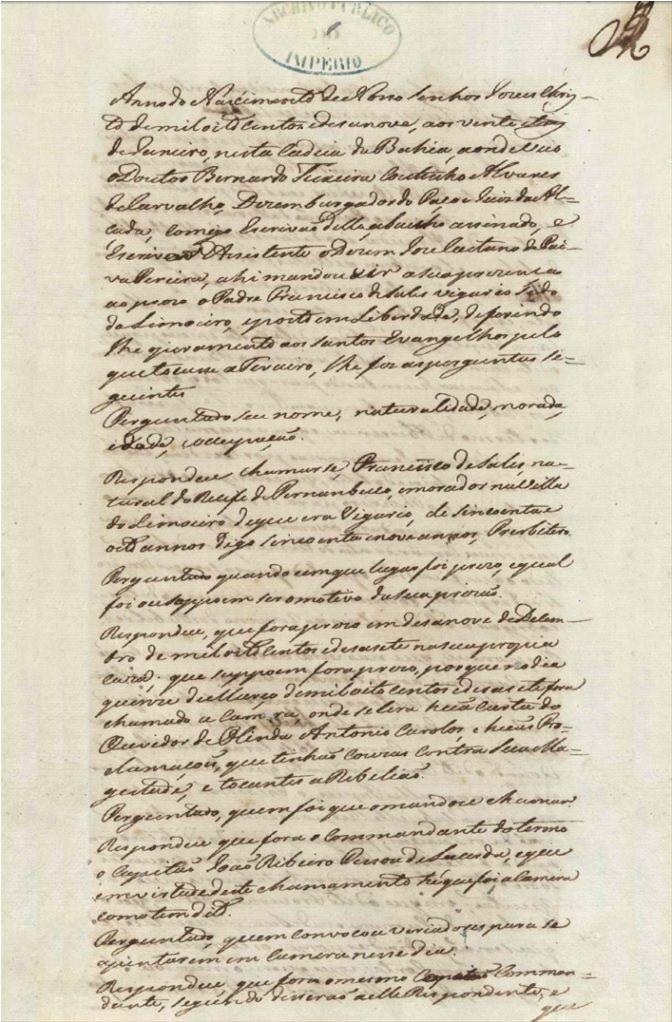 ARCHIVO PUBLICO
DO
IMPERIO
Anno do Nascimento de Nosso Senhor Jezus Chris-
to de mil oito centos e desanove, aos vinte
de Janeiro, nesta Cadeia da Bahia, aonde veio
o Doutor Bernardo Teixeira Coutinho Alvares
de Carvalho, Dezembargador do Paço e Juis da Al-
çada, comigo Escrivão della abaixo assinado, e
Escrivão Assistente o Dezem. Joze Caetano de Pai-
va Pereira, ahi mandou vir a sua prezença
ao prezo o Padre Francisco de Sales vigario
do Limoeiro, e posto em Liberdade, deferindo
lhe o juramento aos Santos Evangelhos pelo
que tocasse a Terceiro, lhe fez as perguntas se-
guintes
Perguntado seu nome, naturalidade, morada,
idade, e occupação.
Respondeu chamarse, Francisco de Sales, na-
tural do Recife de Pernambuco, e morador na Villa
do Limoeiro de que era Vigario, de sincoenta e
oito annos digo sincoenta e nove annos, Presbitero.
Perguntado quando e em que lugar foi prezo, e qual
foi ou suppoem ser o motivo da sua prizão.
Respondeu, que fora prezo em desanove de Dezem-
bro de mil oito centos e desasete na sua propria
caza, que suppoem fora prezo, porque no dia
quinze de Março de mil oito centos e desasete fora
chamado a Camara, onde se lera huã Carta do
Ouvidor de Olinda Antonio Carolos, e huãs Pro-
clamaçoes, que tenhão couzas contra Sua Ma-
gestade, e tocantes a Rebelião.
Perguntado, quem foi que o mandou chamar.
Respondeu que fora o Commandante do termo
o Capitão João Ribeiro Pessoa de Lacerda, e que
em virtude deste chamamento hé que foi a Camera
como tem dito.
Perguntado, quem convocou a vereadores para se
ajuntarem em Camera nesse dia.
Respondeu, que fora o mesmo Comman-
dante, segundo disserão a elle Respondente, e
que